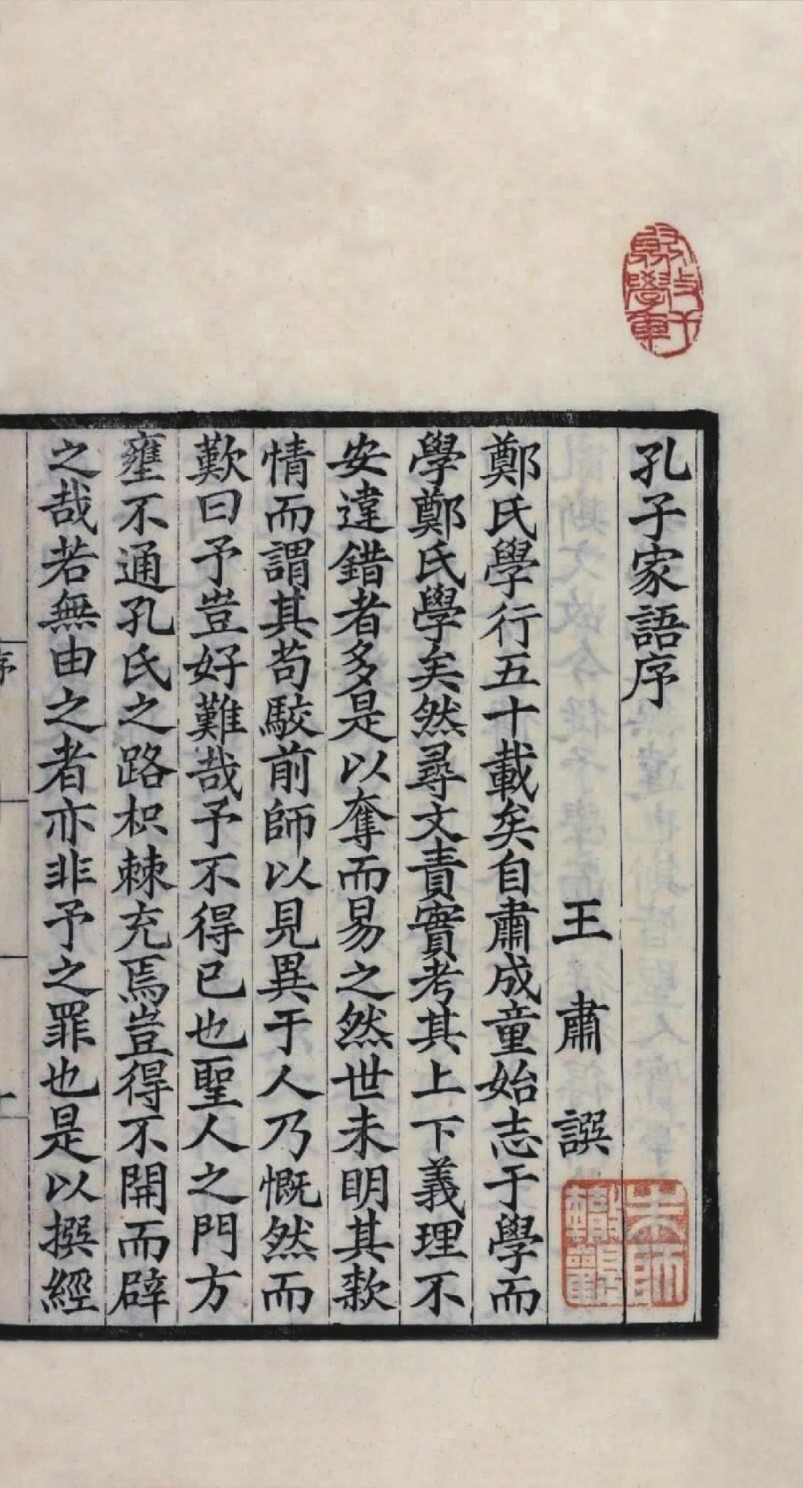 孔子家語序
王肅譔
鄭氏學行五十載矣自肅成童始志于學而
學鄭氏學矣然尋文責實考其上下義理不
安違錯者多是以奪而易之然世未明其款
情而謂其苟駮前師以見異于人乃慨然而
歎曰予豈好難哉予不得已也聖人之門方
壅不通孔氏之路枳棘充焉豈得不開而辟
之哉若無由之者亦非予之罪也是以撰經
序